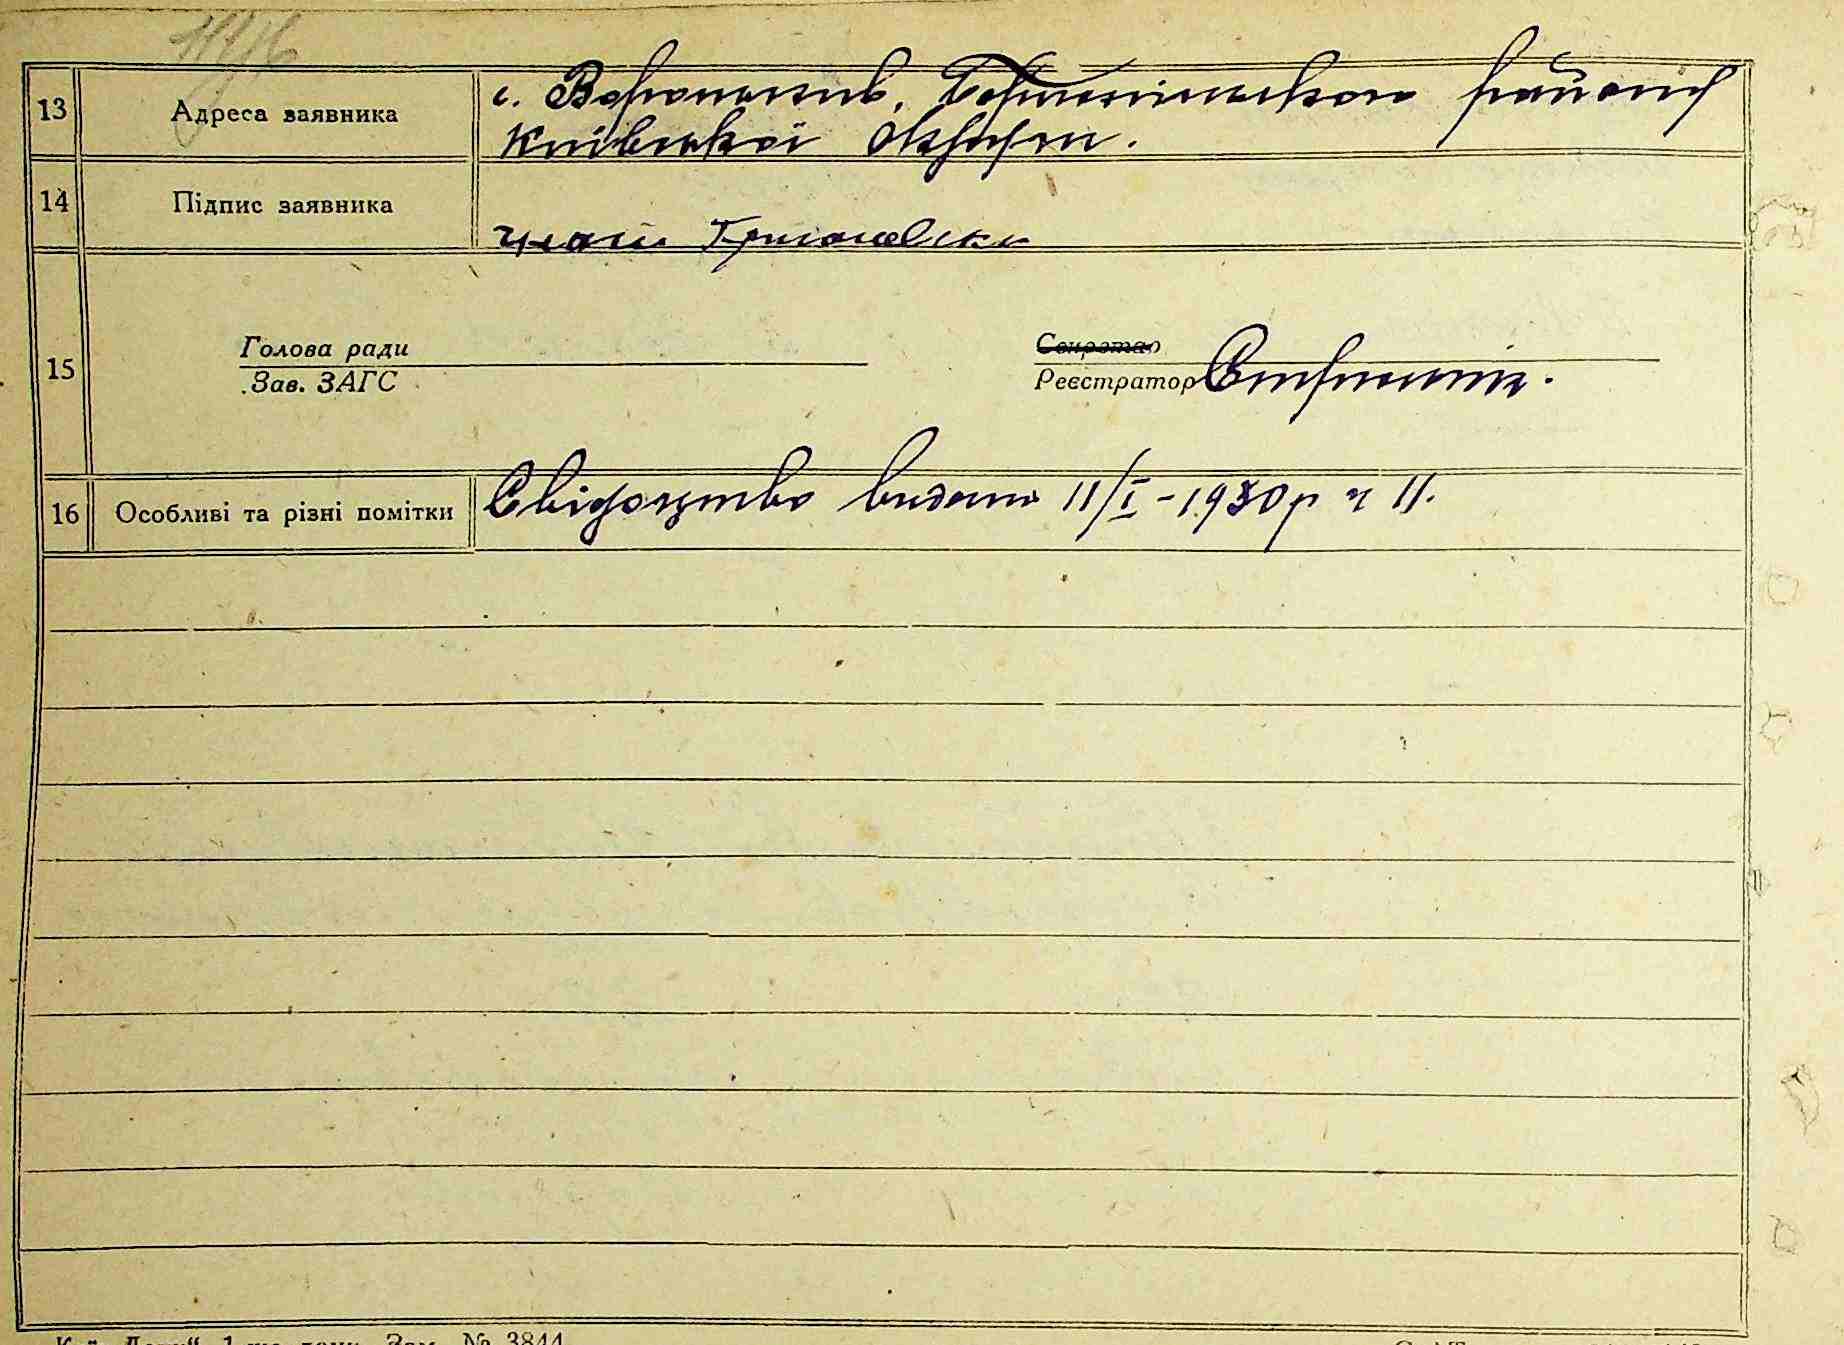 13 Адреса заявника с. Вороньків, Бориспільського району
Київської Округи.
14 Підпис заявника
15
Голова ради
Зав. ЗАГС
Секретар
Реєстратор
16 Особливі та різні помітки Свідоцтво видано 11/I - 1930р ч 11.
№ 3844